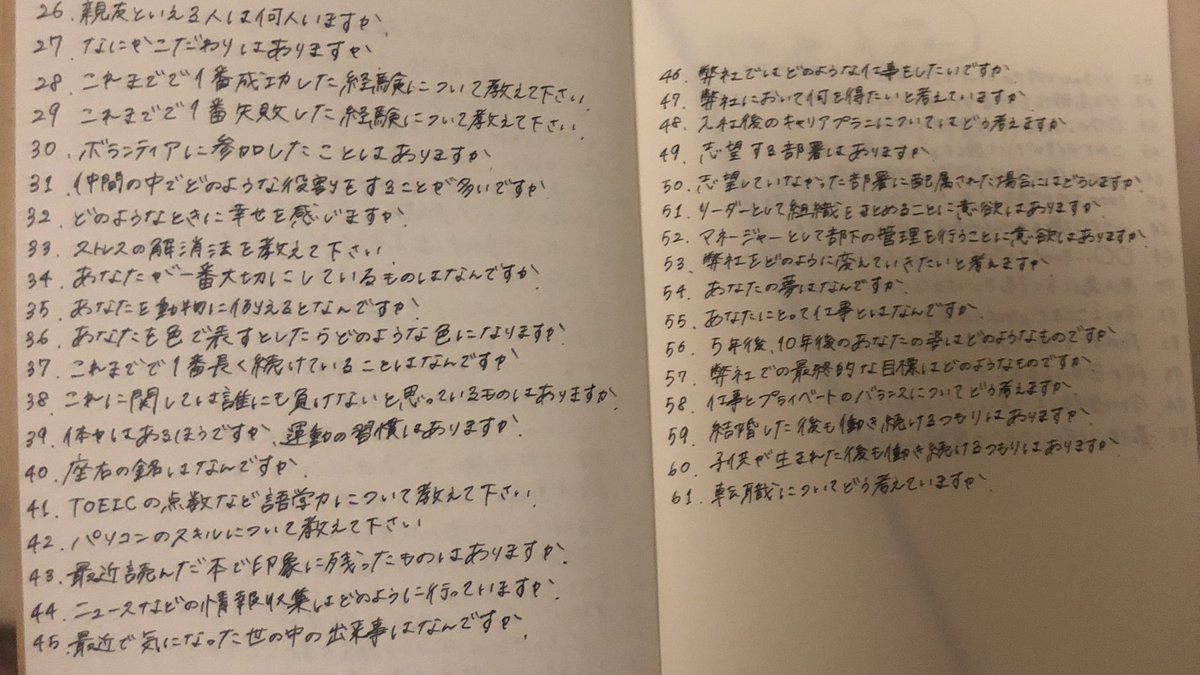 26. 親友といえる人は何人いますか
27. なにかこだわりはありますか
28. これまでで1番成功した経験について教えて下さい
29. これまでで1番失敗した経験について教えて下さい
30. ボランティアに参加したことはありますか
31. 仲間の中でどのような役割りをすることが多いですか
32. どのようなときに幸せを感じますか
33. ストレスの解消法を教えて下さい
34. あなたが一番大切にしているものはなんですか
35. あなたを動物に例えるとなんですか
36. あなたを色で表すとしたらどのような色になりますか
37. これまでで1番長く続けていることはなんですか
38. これに関しては誰にも負けないと思っているものはありますか
39. 体力はあるほうですか、運動の習慣はありますか
40. 座右の銘はなんですか
41. TOEICの点数など語学力について教えて下さい
42. パソコンのスキルについて教えて下さい
43. 最近読んだ本で印象に残ったものはありますか
44. ニュースなどの情報収集はどのように行っていますか
45. 最近で気になった世の中の出来事はなんですか
46. 弊社ではどのような仕事をしたいですか
47. 弊社において何を得たいと考えていますか
48. 入社後のキャリアプランについてはどう考えますか
49. 志望する部署はありますか
50. 志望していなかった部署に配属された場合にはどうしますか
51. リーダーとして組織をまとめることに意欲はありますか
52. マネージャーとして部下の管理を行うことに意欲はありますか
53. 弊社をどのように変えていきたいと考えますか
54. あなたの夢はなんですか
55. あなたにとって仕事とはなんですか
56. 5年後、10年後のあなたの姿はどのようなものですか
57. 弊社での最終的な目標はどのようなものですか
58. 仕事とプライベートのバランスについてどう考えますか
59. 結婚した後も働き続けるつもりはありますか
60. 子供が生まれた後も働き続けるつもりはありますか
61. 転職についてどう考えていますか